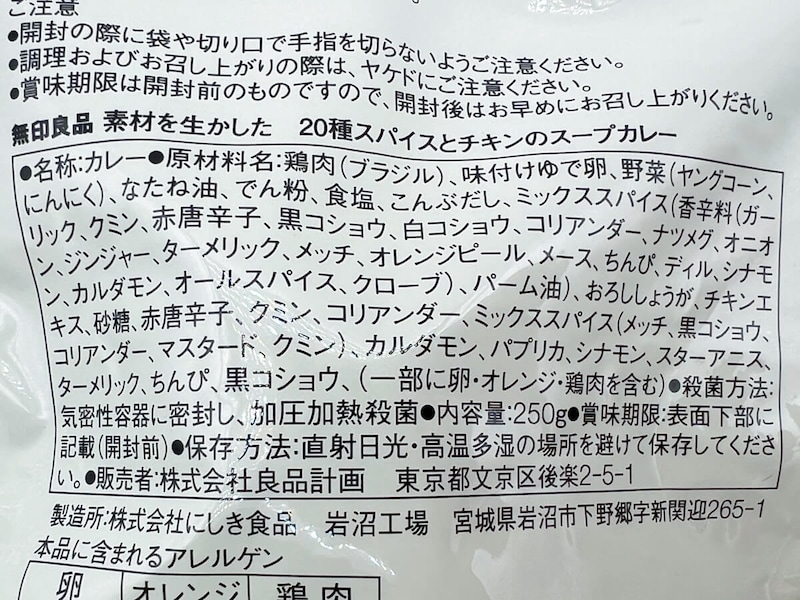 ご注意
●開封の際に袋や切り口で手指を切らないようご注意ください。
●調理およびお召し上がりの際は、ヤケドにご注意ください。
●賞味期限は開封前のものですので、開封後はお早めにお召し上がりください。
無印良品 素材を生かした 20種スパイスとチキンのスープカレー
●名称:カレー●原材料名:鶏肉(ブラジル)、味付けゆで卵、野菜(ヤングコーン、
にんにく)、なたね油、でん粉、食塩、こんぶだし、ミックススパイス(香辛料(ガー
リック、クミン、赤唐辛子、黒コショウ、白コショウ、コリアンダー、ナツメグ、オニオ
ン、ジンジャー、ターメリック、メッチ、オレンジピール、メース、ちんぴ、ディル、シナモ
ン、カルダモン、オールスパイス、クローブ)、パーム油)、おろししょうが、チキンエ
キス、砂糖、赤唐辛子、クミン、コリアンダー、ミックススパイス(メッチ、黒コショウ、
コリアンダー、マスタード、クミン)、カルダモン、パプリカ、シナモン、スターアニス、
ターメリック、ちんぴ、黒コショウ、(一部に卵・オレンジ・鶏肉を含む)●殺菌方法:
気密性容器に密封し、加圧加熱殺菌●内容量:250g●賞味期限:表面下部に
記載(開封前)●保存方法:直射日光・高温多湿の場所を避けて保存してくださ
い。●販売者:株式会社良品計画 東京都文京区後楽2-5-1
製造所:株式会社にしき食品 岩沼工場 宮城県岩沼市下野郷字新関迎265-1
本品に含まれるアレルゲン
卵 オレンジ 鶏肉